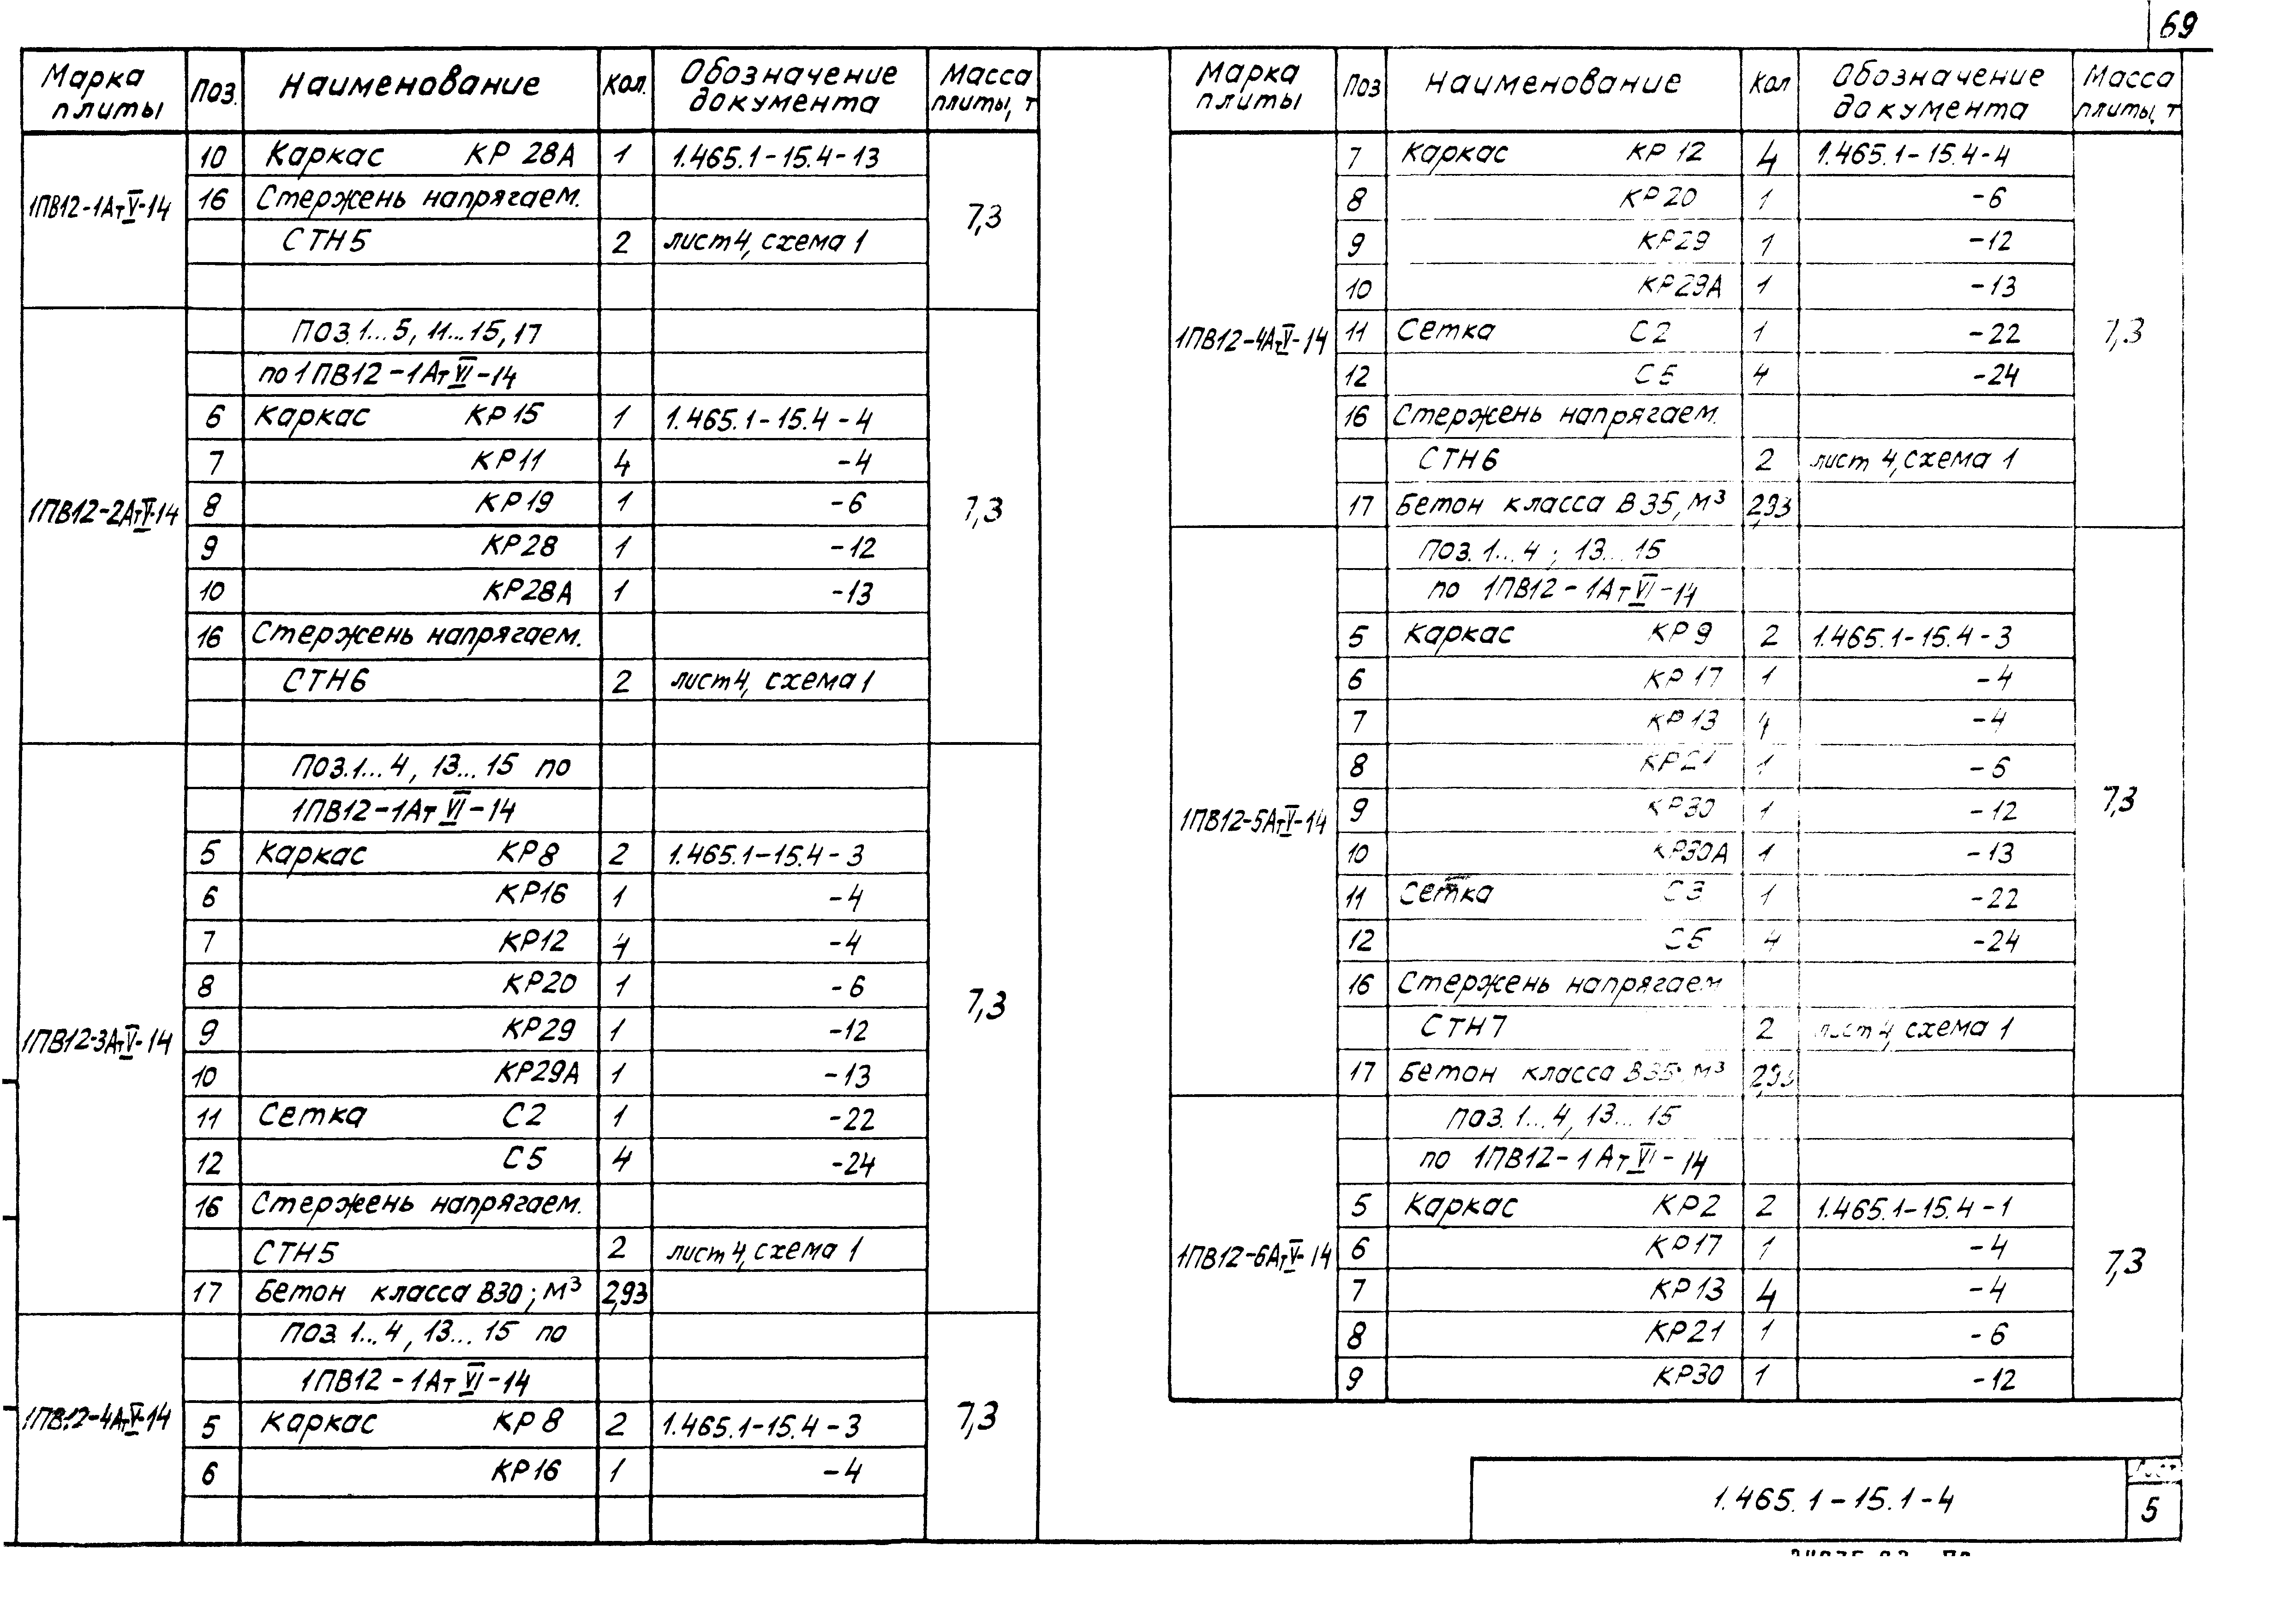 69
Марка плиты Поз. Наименование Кол. Обозначение документа Масса плиты, т
1ПВ12-1АтV-14 7,3
10 Каркас КР 28А 1 1.465.1-15.4-13
16 Стержень напрягаем.
СТН5 2 лист 4, схема 1
1ПВ12-2АтV-14 7,3
Поз. 1...5, 11...15, 17
по 1ПВ12-1АтVI-14
6 Каркас КР15 1 1.465.1-15.4-4
7 КР11 4 -4
8 КР19 1 -6
9 КР28 1 -12
10 КР28А 1 -13
16 Стержень напрягаем.
СТН6 2 лист 4, схема 1
1ПВ12-3АтV-14 7,3
Поз. 1...4, 13...15 по
1ПВ12-1АтVI-14
5 Каркас КР8 2 1.465.1-15.4-3
6 КР16 1 -4
7 КР12 4 -4
8 КР20 1 -6
9 КР29 1 -12
10 КР29А 1 -13
11 Сетка С2 1 -22
12 С5 4 -24
16 Стержень напрягаем.
СТН5 2 лист 4, схема 1
17 Бетон класса В30; м³ 2,93
1ПВ12-4АтV-14 7,3
Поз. 1...4, 13...15 по
1ПВ12-1АтVI-14
5 Каркас КР8 2 1.465.1-15.4-3
6 КР16 1 -4
Марка плиты Поз Наименование Кол Обозначение документа Масса плиты, т
1ПВ12-4АтV-14 7,3
7 Каркас КР12 4 1.465.1-15.4-4
8 КР20 1 -6
9 КР29 1 -12
10 КР29А 1 -13
11 Сетка С2 1 -22
12 С5 4 -24
16 Стержень напрягаем.
СТН6 2 лист 4, схема 1
17 Бетон класса В35, м³ 2,93
1ПВ12-5АтV-14 7,3
Поз. 1...4; 13...15
по 1ПВ12-1АтVI-14
5 Каркас КР9 2 1.465.1-15.4-3
6 КР17 1 -4
7 КР13 4 -4
8 КР21 1 -6
9 КР30 1 -12
10 КР30А 1 -13
11 Сетка С3 1 -22
12 С5 4 -24
16 Стержень напрягаем
СТН7 2 лист 4, схема 1
17 Бетон класса В35; м³ 2,93
1ПВ12-6АтV-14 7,3
Поз. 1...4, 13...15
по 1ПВ12-1АтVI-14
5 Каркас КР2 2 1.465.1-15.4-1
6 КР17 1 -4
7 КР13 4 -4
8 КР21 1 -6
9 КР30 1 -12
1.465.1-15.1-4
Лист
5